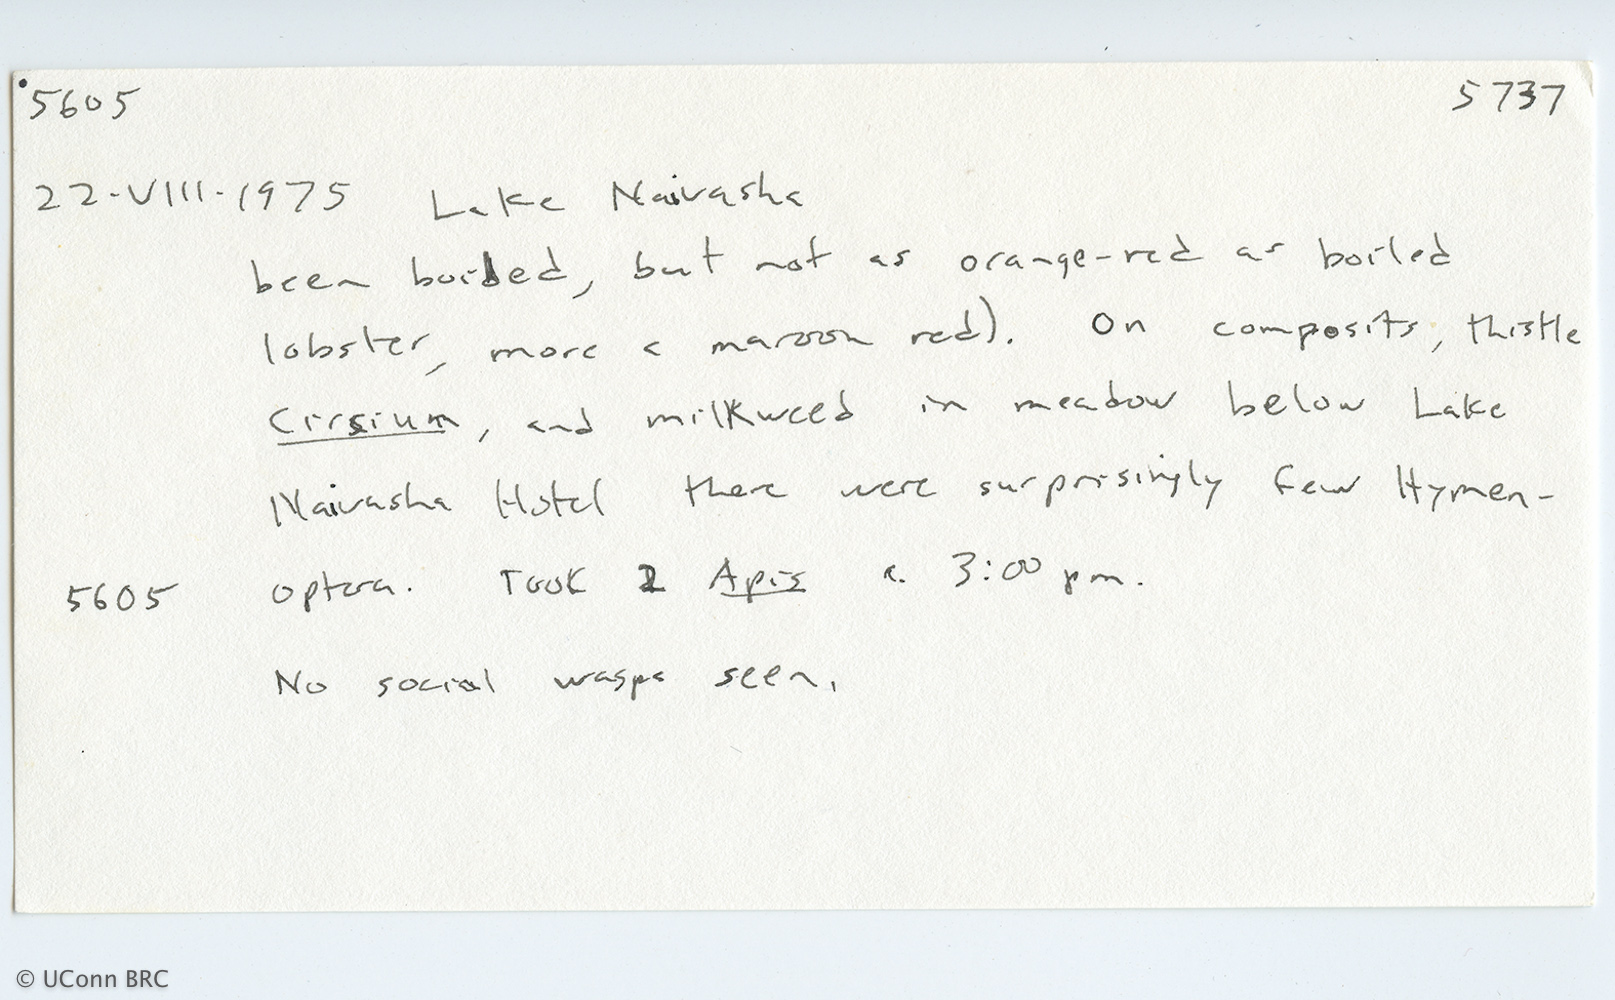 5605 5737
22-VIII-1975 Lake Naivasha
been boiled, but not as orange-red as boiled
lobster, more a maroon red). On composits, thistle
Cirsium, and milkweed in meadow below Lake
Naivasha Hotel there were surprisingly few Hymen-
5605 optera. Took 2 Apis c. 3:00 pm.
No social wasps seen.
© UConn BRC